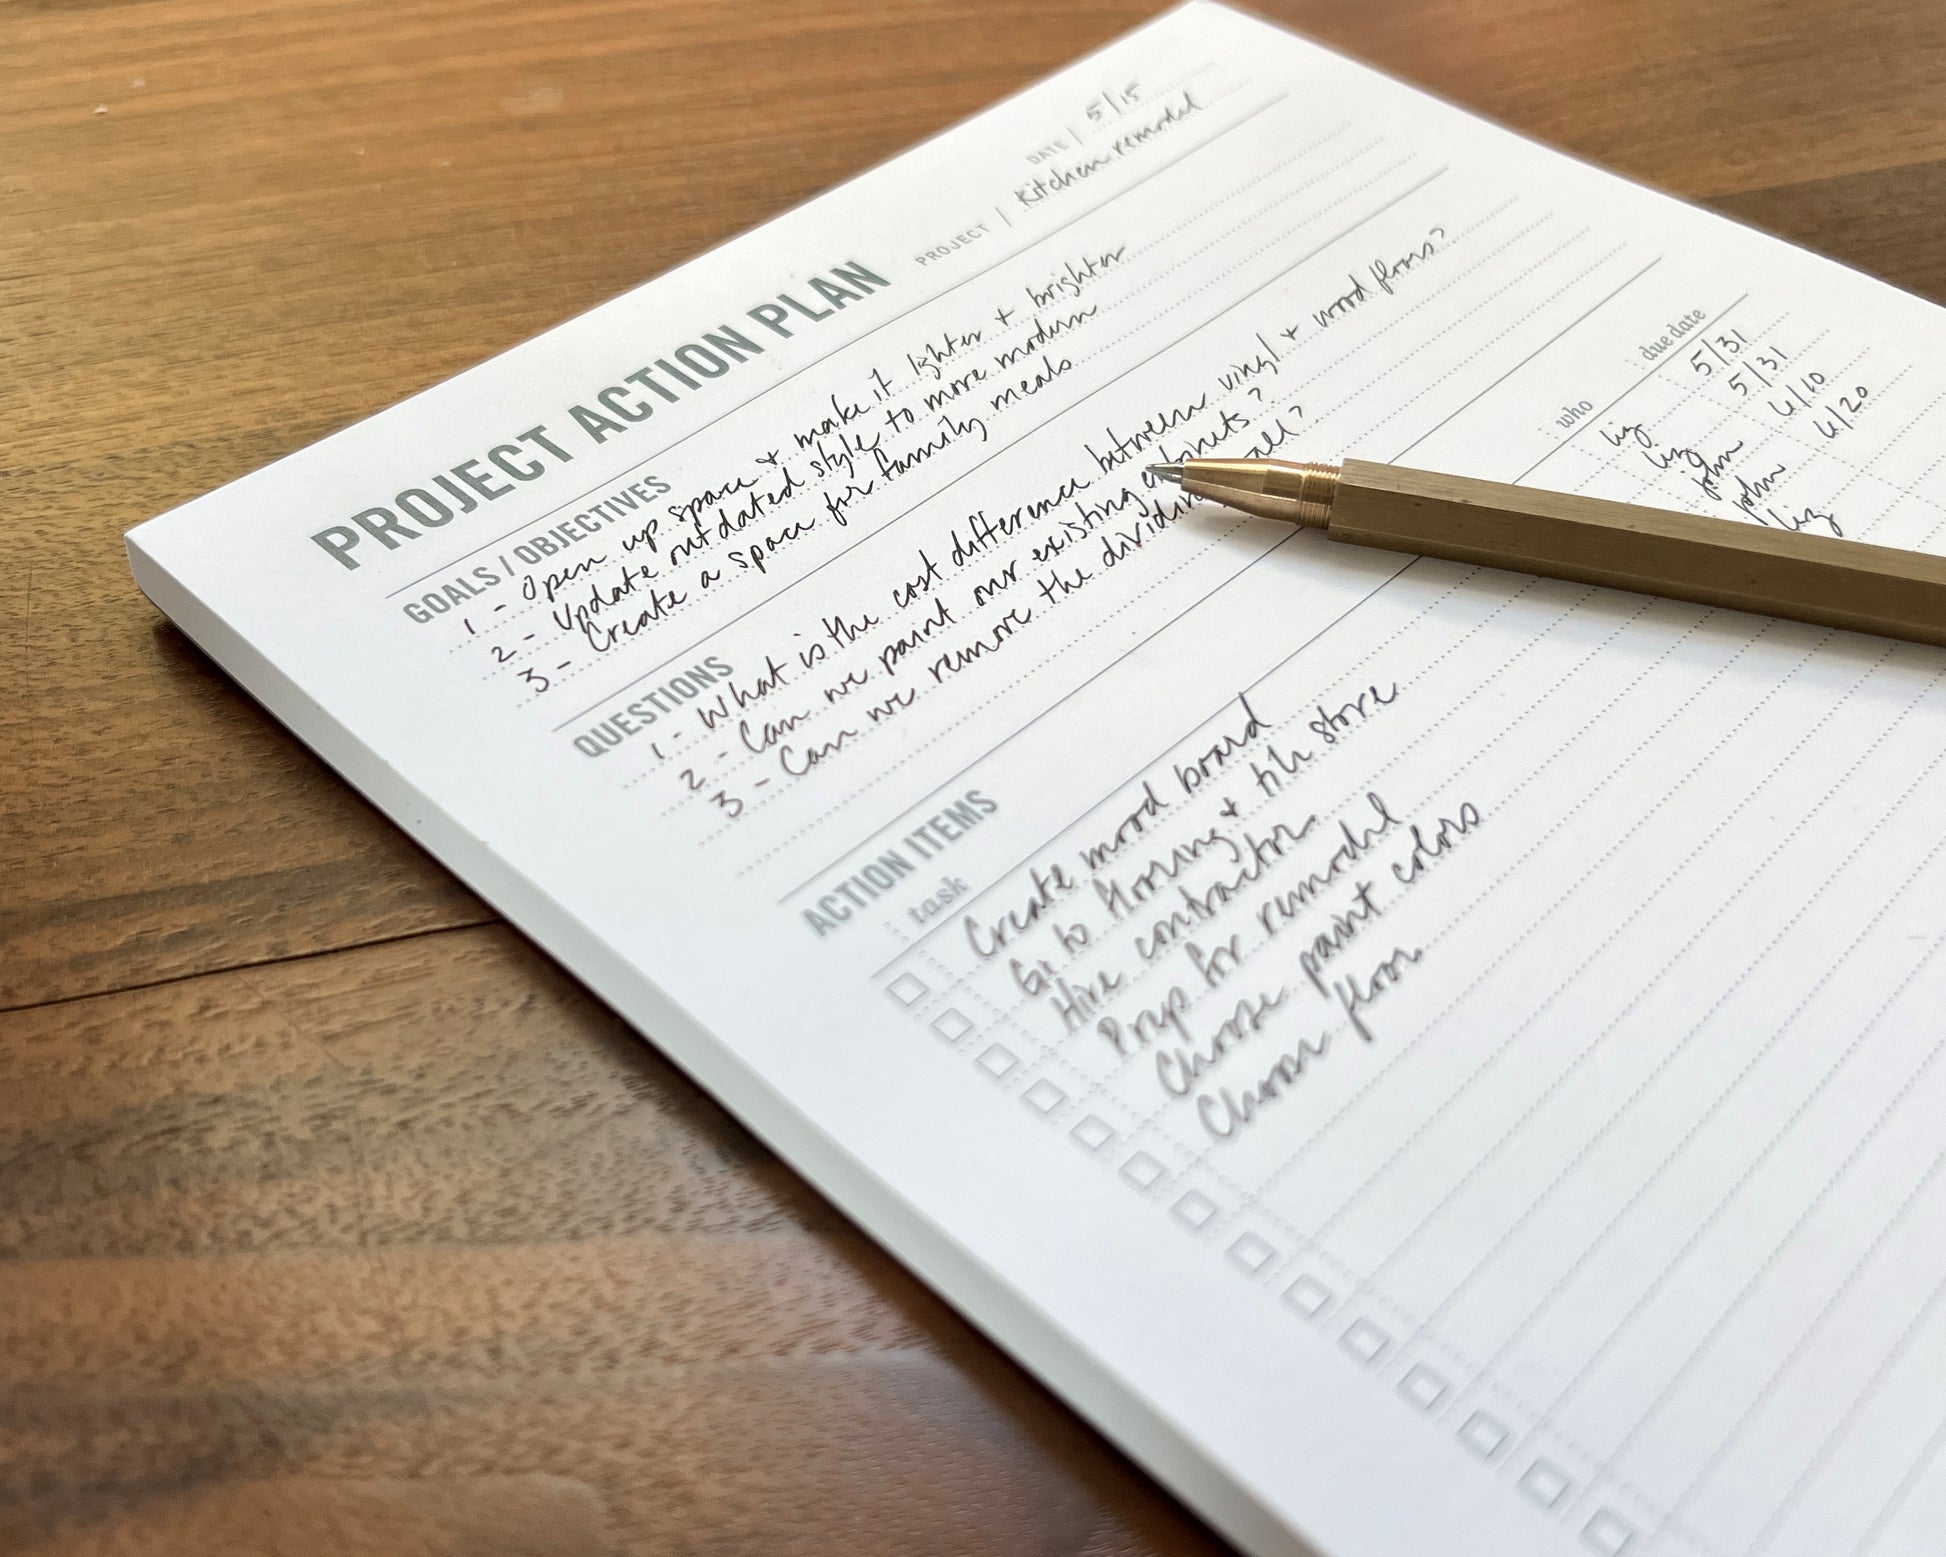 PROJECT ACTION PLAN
DATE / 5/15
PROJECT / Kitchen remodel
GOALS / OBJECTIVES
1 - Open up space + make it lighter + brighter
2 - Update outdated style to more modern
3 - Create a space for family meals
QUESTIONS
1 - What is the cost difference between vinyl + wood floors?
2 - Can we paint our existing cabinets?
3 - Can we remove the dividing wall?
ACTION ITEMS
task who due date
Create mood board liz 5/31
Go to flooring + tile store liz 5/31
Hire contractor John 6/10
Prep for remodel John 6/20
Choose paint colors liz
Choose floor